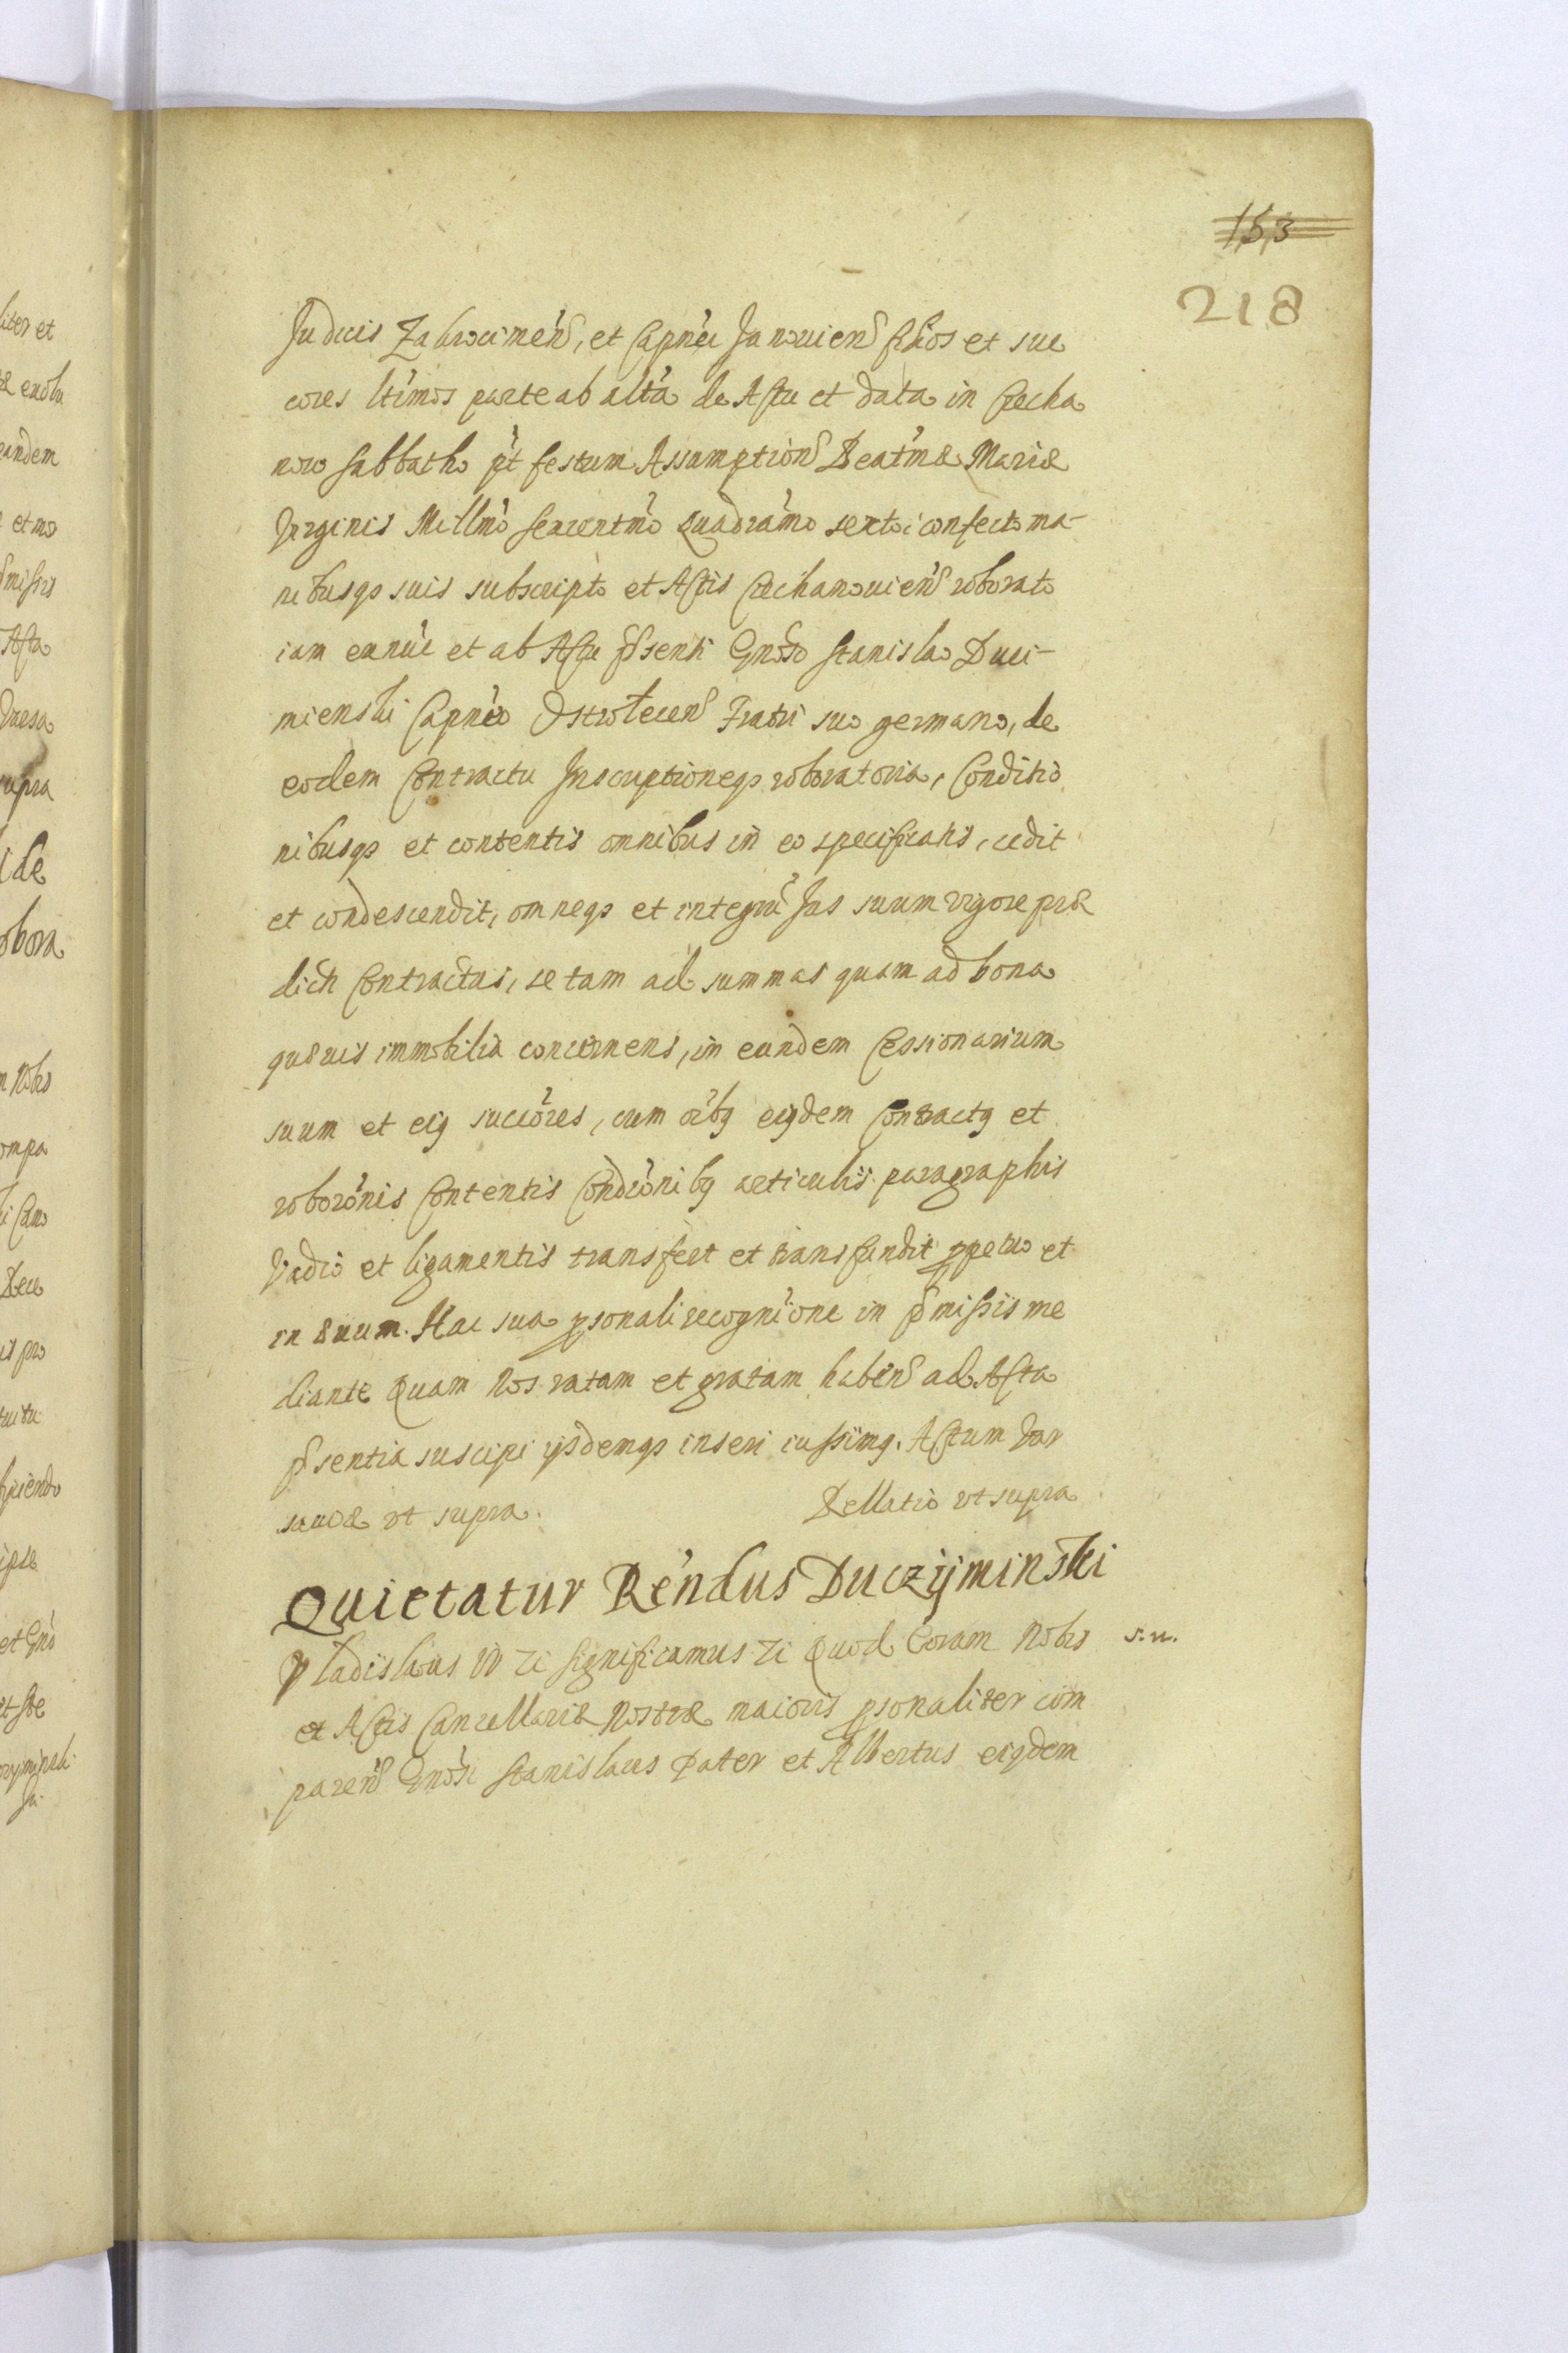 153
218
Judicis Zabrocimen̄, et Capnēi Janouien̄ filios et suc
cores ltimos parte ab alta de Actu et data in Ciecha
now sabbatho pt festum Assumption̄ Beatmæ Mariæ
Virginis Millmo sexcentmo Quadramo sexto confecto ma-
nibusqз suis subscripto et Actis Ciechanouien̄ roborato
iam ex nūc et ab Actu psenti Gnoso Stanislao Duci-
mienski Capneo Ostrolecen̄ Fratri suo germano, de
eodem Contractu Inscriptioneqз roboratoria, Conditio
nibusqз et contentis omnibus in eo specificatis, cedit
et condescendit, omneqз et integrū Jus suum vigore præ
dicti Contractus, se tam ad summas quam ad bona
quæuis immobilia concernens, in eundem Cessionarium
suum et eig succōres, cum oibg eigdem Contractg et
roborōnis Contentis Condrōnibg articulis paragraphis
Vadio et ligamentis transfert et transfundit ppetuo et
in æuum. Hac sua psonali recognīone in pmissis me
diante Quam Nos ratam et gratam haben̄ ad Acta
psentia suscipi ijsdemqз inseri iussimg. Actum Var
sauiæ ut supra.
Rellatio ut supra
Quietatur Rendus Duczyminski
Vladislaus IV Zc significamus Zc Quod Coram Nobis s. n.
et Actis Cancellariæ Nostræ maioris psonaliter com
paren̄ Gnosi Stanislaus Pater et Albertus eigdem